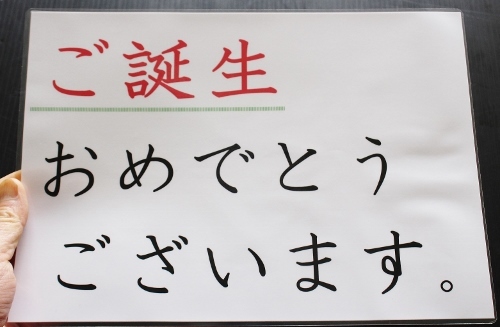 ご誕生
おめでとう
ございます。